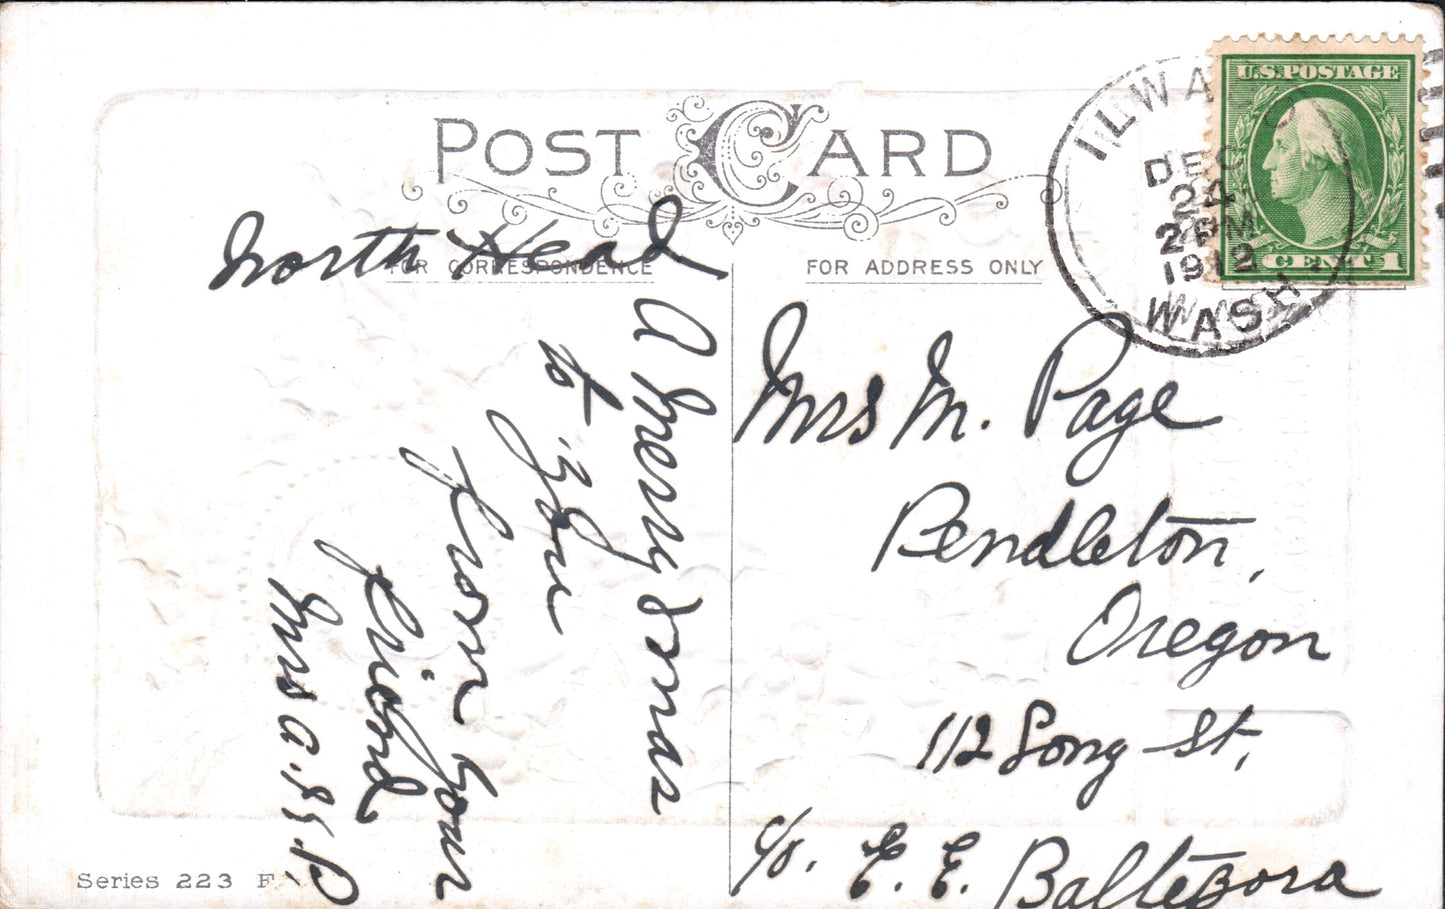 POST CARD
FOR CORRESPONDENCE
FOR ADDRESS ONLY
U.S. POSTAGE
CENT 1
ILWACO
DEC
24
2 PM
1912
WASH.
North Head
A Merry Xmas
to You
from your
friend
Mrs
Mrs M. Page
Pendleton,
Oregon
112 Long St,
c/o. E. E. Baltezora
Series 223 F